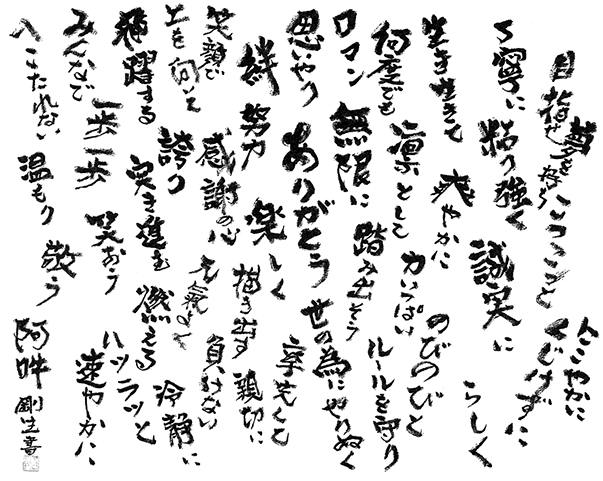 にこやかに
くじけずに
目指せ
夢を
コツコツと
丁寧に
粘り強く
誠実に
らしく
生き生きて
爽やかに
のびのびと
何度でも
凛として
力いっぱい
ルールを守り
ロマン
無限に
踏み出そう
世の為にやりぬく
思いやり
ありがとう
絆
努力
楽しく
描き出す
親切に
笑顔で
感謝の心
元気よく
負けない
上を向いて
誇り
冷静に
飛躍する
突き進む
燃える
ハツラツと
みんなで
一歩一歩
笑おう
速やかに
へこたれない
温もり
敬う
阿吽
剛生書